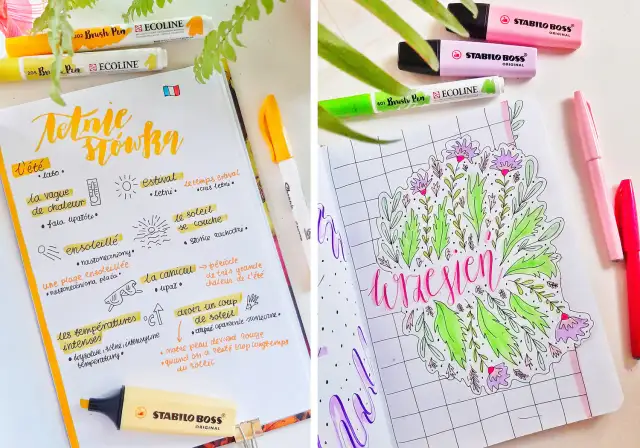 Brush Pen
ECOLINE
Brush Pen
ECOLINE
letnie
słówka
l'été
• lato •
la vague
de chaleur
• fala upałów •
estival
• letni •
le temps estival
• czas letni •
le soleil
se couche
• słońce zachodzi •
ensoleillé
• nasłoneczniony •
une plage ensoleillée
• nasłoneczniona plaża •
la canicul
• upał •
→ période
de très grande
chaleur de l'été
les températures
intenses
°C
avoir un coup
de soleil
• notre peau devient rouge
quand on a resté trop longtemps
au soleil
STABILO BOSS
ORIGINAL
STABILO BOSS
ORIGINAL
STABILO BOSS
ORIGINAL
601 Brush Pen
ECOLINE
wrzesień